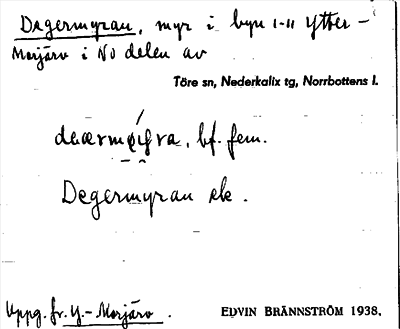 Degermyran, myr i byn 1-11 Ytter-
Morjärv i NO delen av
Töre sn, Nederkalix tg, Norrbottens l.
bf. fem.
Degermyran ek.
Uppg. fr. Y.-Morjärv.
EDVIN BRÄNNSTRÖM 1938.